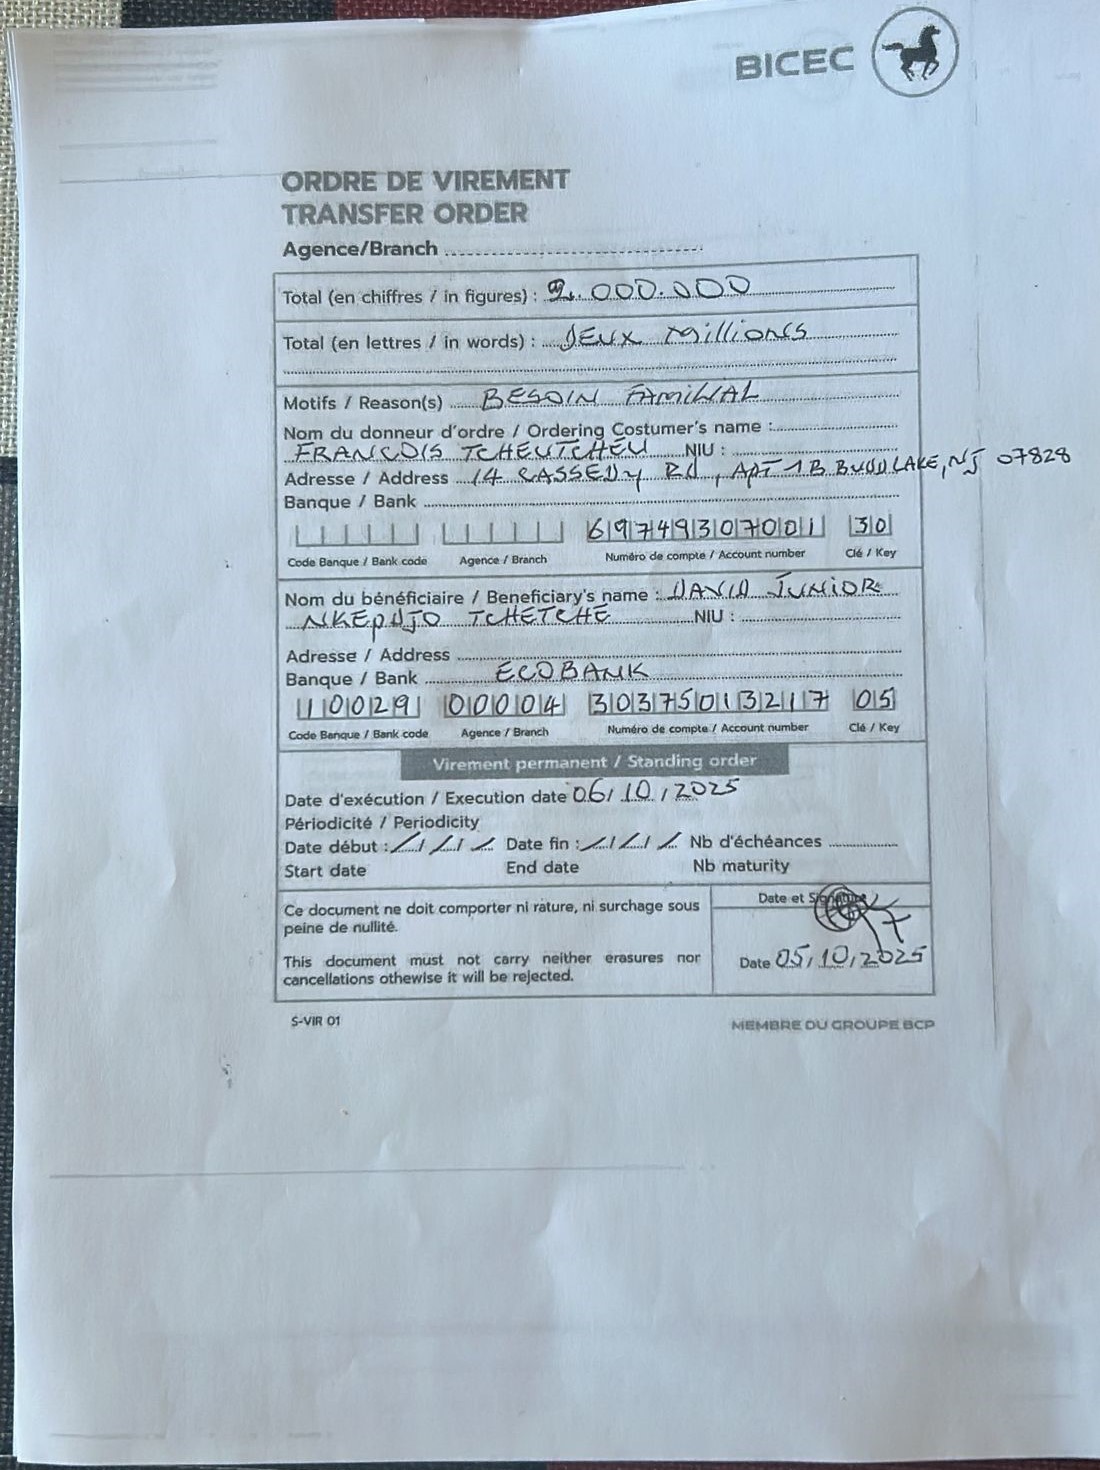 BICEC
ORDRE DE VIREMENT
TRANSFER ORDER
Agence/Branch
Total (en chiffres / in figures) : 2.000.000
Total (en lettres / in words) : DEUX Millions
Motifs / Reason(s) BESOIN FAMILIAL
Nom du donneur d'ordre / Ordering Costumer's name :
FRANCOIS TCHEUTCHEU NIU :
Adresse / Address 14 CASSEDY Rd, APT 1B BUDD LAKE, NJ 07828
Banque / Bank
69749307001 30
Code Banque / Bank code Agence / Branch Numéro de compte / Account number Clé / Key
Nom du bénéficiaire / Beneficiary's name : DAVID JUNiOR
NKEPDJO TCHETCHE NIU :
Adresse / Address
Banque / Bank ECOBANK
10029 00004 30375013217 05
Code Banque / Bank code Agence / Branch Numéro de compte / Account number Clé / Key
Virement permanent / Standing order
Date d'exécution / Execution date 06/10/2025
Périodicité / Periodicity
Date début : / / Date fin : / / Nb d'échéances
Start date End date Nb maturity
Ce document ne doit comporter ni rature, ni surchage sous
peine de nullité.
This document must not carry neither erasures nor
cancellations othewise it will be rejected.
Date et Signature
Date 05/10/2025
S-VIR 01
MEMBRE DU GROUPE BCP